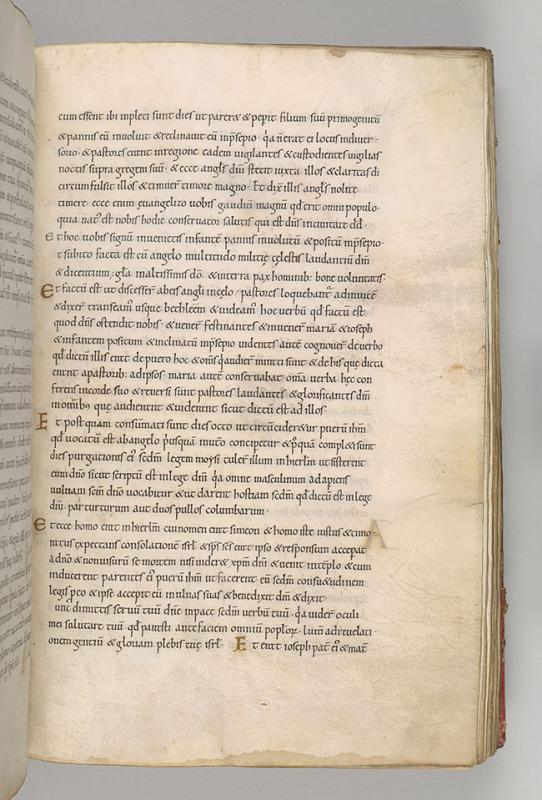 cum essent ibi inpleti sunt dies ut pareret & pepit filium suū primogenitū
& pannis eū inuoluit & reclinauit eū inpsepio · qa n̄ erat ei locus indiuer
sorio · & pastores erant inregione eadem uigilantes & custodientes uigilias
noctis supra gregem suū · & ecce angls dn̄i stetit iuxta illos & claritas di
circum fulsit illos & timuer timore magno · Et dix illis angls nolite
timere · ecce enim euangelizo uobis gaudiū magnū qd erit omni populo ·
quia nat est nobis hodie conseruator salutis qui est dn̄s inciuitate dd
Et hoc uobis signū inuenietis infantē pannis inuolutū & positū inpsepio ·
t subito facta est cū angelo multitudo militię cęlestis laudantiū dm̄
& dicentium · gla inaltissimis do · & interra pax hominib bonę uoluntatis ·
Et factū est ut discesser abeis angli incęlo / pastores loquebant adinuicē
& dixer transeam usque bethleem & uideam hoc uerbū qd factū est
quod dn̄s ostendit nobis · & uener festinantes & inuener mariā & ioseph
& infantem positum & inclinatū inpsepio uidentes autē cognouer deuerbo
qd dictū illis erat de puero hoc & om̄s qaudier mirati sunt & de his que dicta
erant apastorib adipsos · maria autē conseruabat omia uerba hęc con
ferens incorde suo & reuersi sunt pastores laudantes & glorificantes dm̄
inomib que audierant & uiderunt sicut dictū est ad illos
Et post quam consumati sunt dies octo ut circūcideretur puerū ihm̄
qd uocatū est abangelo pusquā inutō conciperetur & pquā completi sunt
dies purgationis ei sedm̄ legem moysi tuler illum inhierlm̄ ut sisterent
eum dn̄o sicut scriptū est inlege dn̄i qa omne masculinum adapiens
uuluam scm̄ dn̄o uocabitur & ut darent hostiam sedm̄ qd dictū est inlege
dn̄i par turturum aut duos pullos columbarum
Et ecce homo erat inhierlm̄ cui nomen erat simeon & homo iste iustus & timo
ratus expectans consolationē isrl & sps scs erat ipso & responsum acceperat
adn̄o & nonuisurū se mortem nisi uideret xpm̄ dn̄i & uenit intēplo & cum
inducerent parentes ei puerū ihm̄ ut facerent eū sedm̄ consuetudinem
legis peo & ipse accepit eū inulnas suas & benedixit dm̄ & dixit
unc dimittis seruū tuū dn̄e inpace sedm̄ uerbū tuū · qa uider oculi
mei salutare tuū qd parasti antefaciem omniū poplor lum̄ adreuelati
onem gentiū & gloriam plebis tuę isrl Et erat ioseph pat ei & mat
A